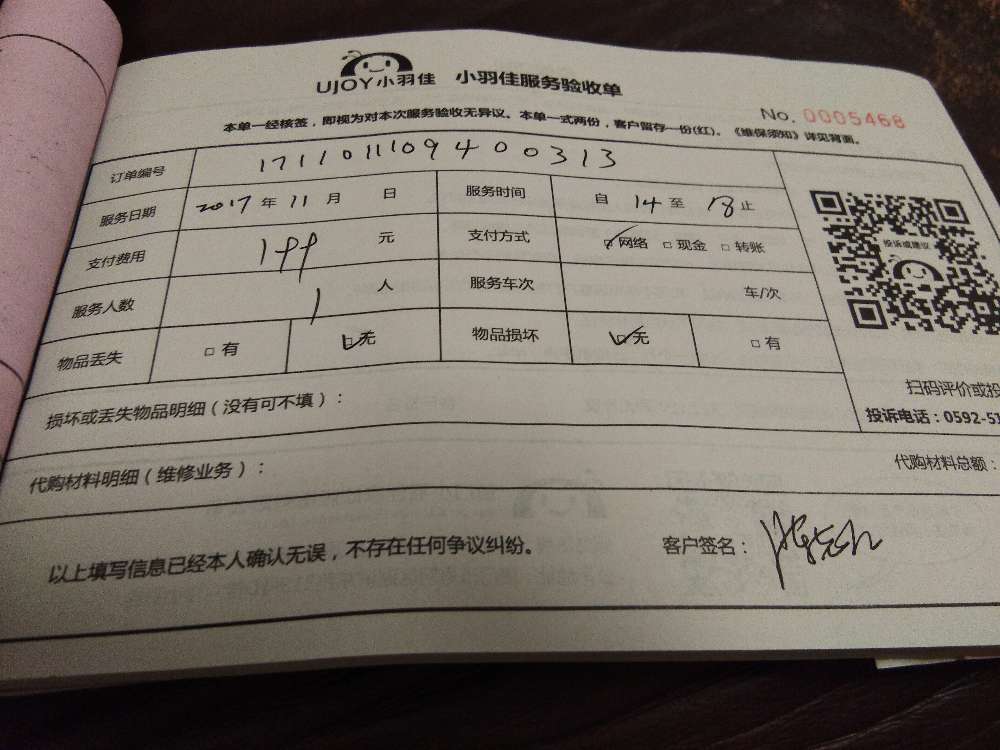 UJOY小羽佳 小羽佳服务验收单
No. 0005468
本单一经核签，即视为对本次服务验收无异议。本单一式两份，客户留存一份(红)。《维保须知》详见背面。
订单编号 1711011109400313
服务日期 2017年11月 日 服务时间 自 14 至 18 止
支付费用 199 元 支付方式 ☑网络 □现金 □转账
服务人数 1 人 服务车次 车/次
物品丢失 □有 ☑无 物品损坏 ☑无 □有
投诉或建议
扫码评价或投
投诉电话：0592-51
损坏或丢失物品明细（没有可不填）：
代购材料明细（维修业务）： 代购材料总额：
以上填写信息已经本人确认无误，不存在任何争议纠纷。 客户签名：